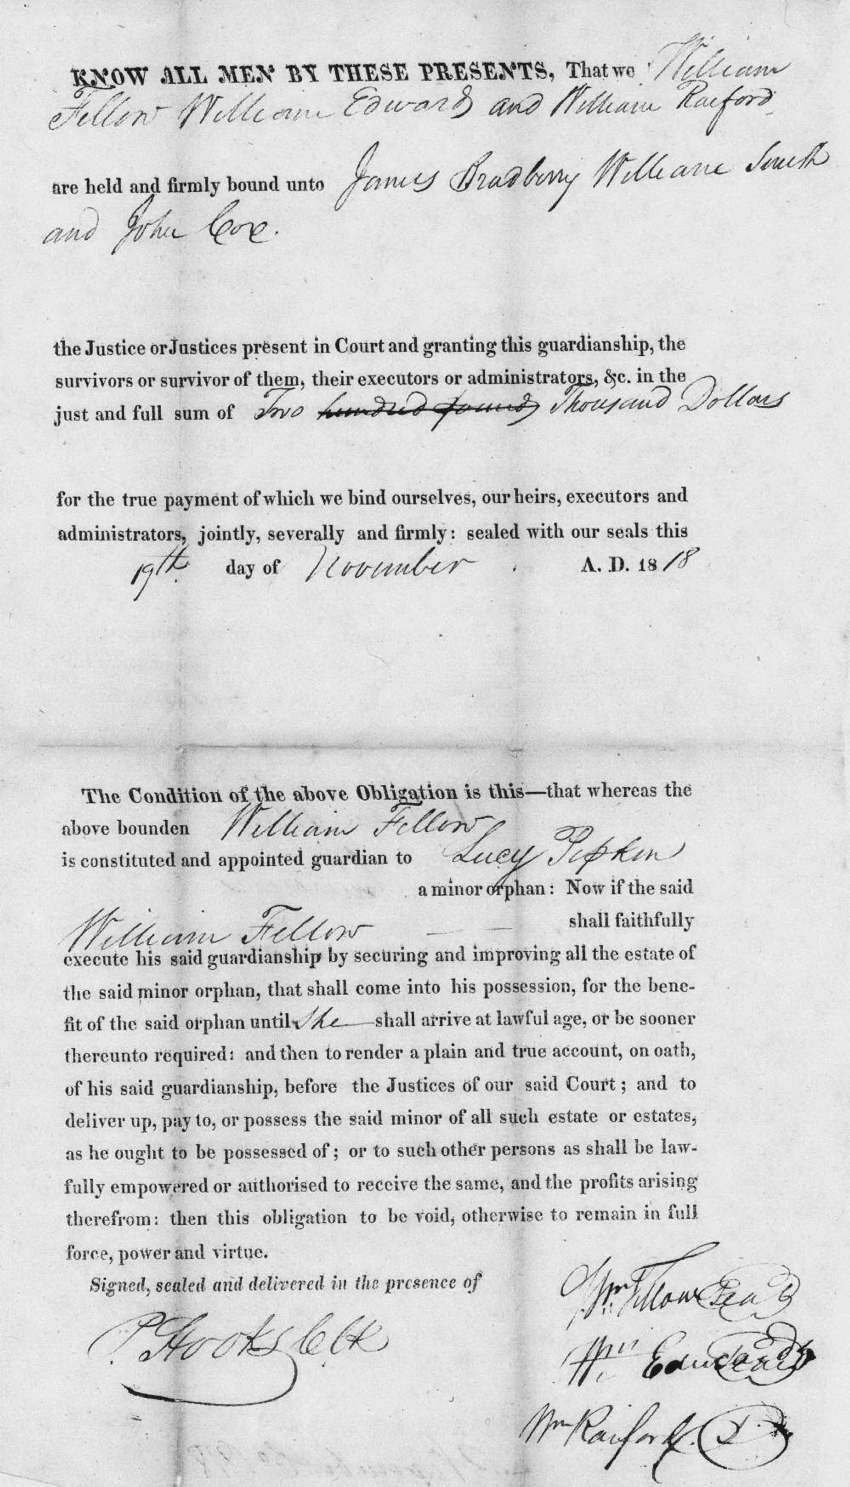 KNOW ALL MEN BY THESE PRESENTS, That we William
Fellow William Edwards and William Raiford
are held and firmly bound unto James Bradberry William Smith
and John Cox.
the Justice or Justices present in Court and granting this guardianship, the
survivors or survivor of them, their executors or administrators, &c. in the
just and full sum of Two hundred pounds Thousand Dollars
for the true payment of which we bind ourselves, our heirs, executors and
administrators, jointly, severally and firmly: sealed with our seals this
19th day of November A. D. 1818
The Condition of the above Obligation is this—that whereas the
above bounden William Fellow
is constituted and appointed guardian to Lucy Pipkin
a minor orphan: Now if the said
William Fellow shall faithfully
execute his said guardianship by securing and improving all the estate of
the said minor orphan, that shall come into his possession, for the bene-
fit of the said orphan until She shall arrive at lawful age, or be sooner
thereunto required: and then to render a plain and true account, on oath,
of his said guardianship, before the Justices of our said Court; and to
deliver up, pay to, or possess the said minor of all such estate or estates,
as he ought to be possessed of; or to such other persons as shall be law-
fully empowered or authorised to receive the same, and the profits arising
therefrom: then this obligation to be void, otherwise to remain in full
force, power and virtue.
Signed, sealed and delivered in the presence of
P. Hooks Clk
Wm Fellow Seal
Wm Edwards Seal
Wm Raiford